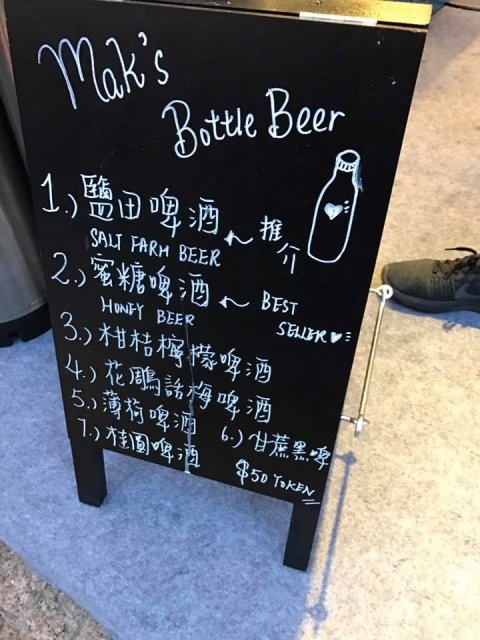 Mak's
Bottle Beer
1.) 鹽田啤酒
推介
SALT FARM BEER
2.) 蜜糖啤酒
BEST SELLER
HONEY BEER
3.) 柑桔檸檬啤酒
4.) 花雕話梅啤酒
5.) 薄荷啤酒
6.) 甘蔗黑啤
7.) 桂圓啤酒
$50 TOKEN